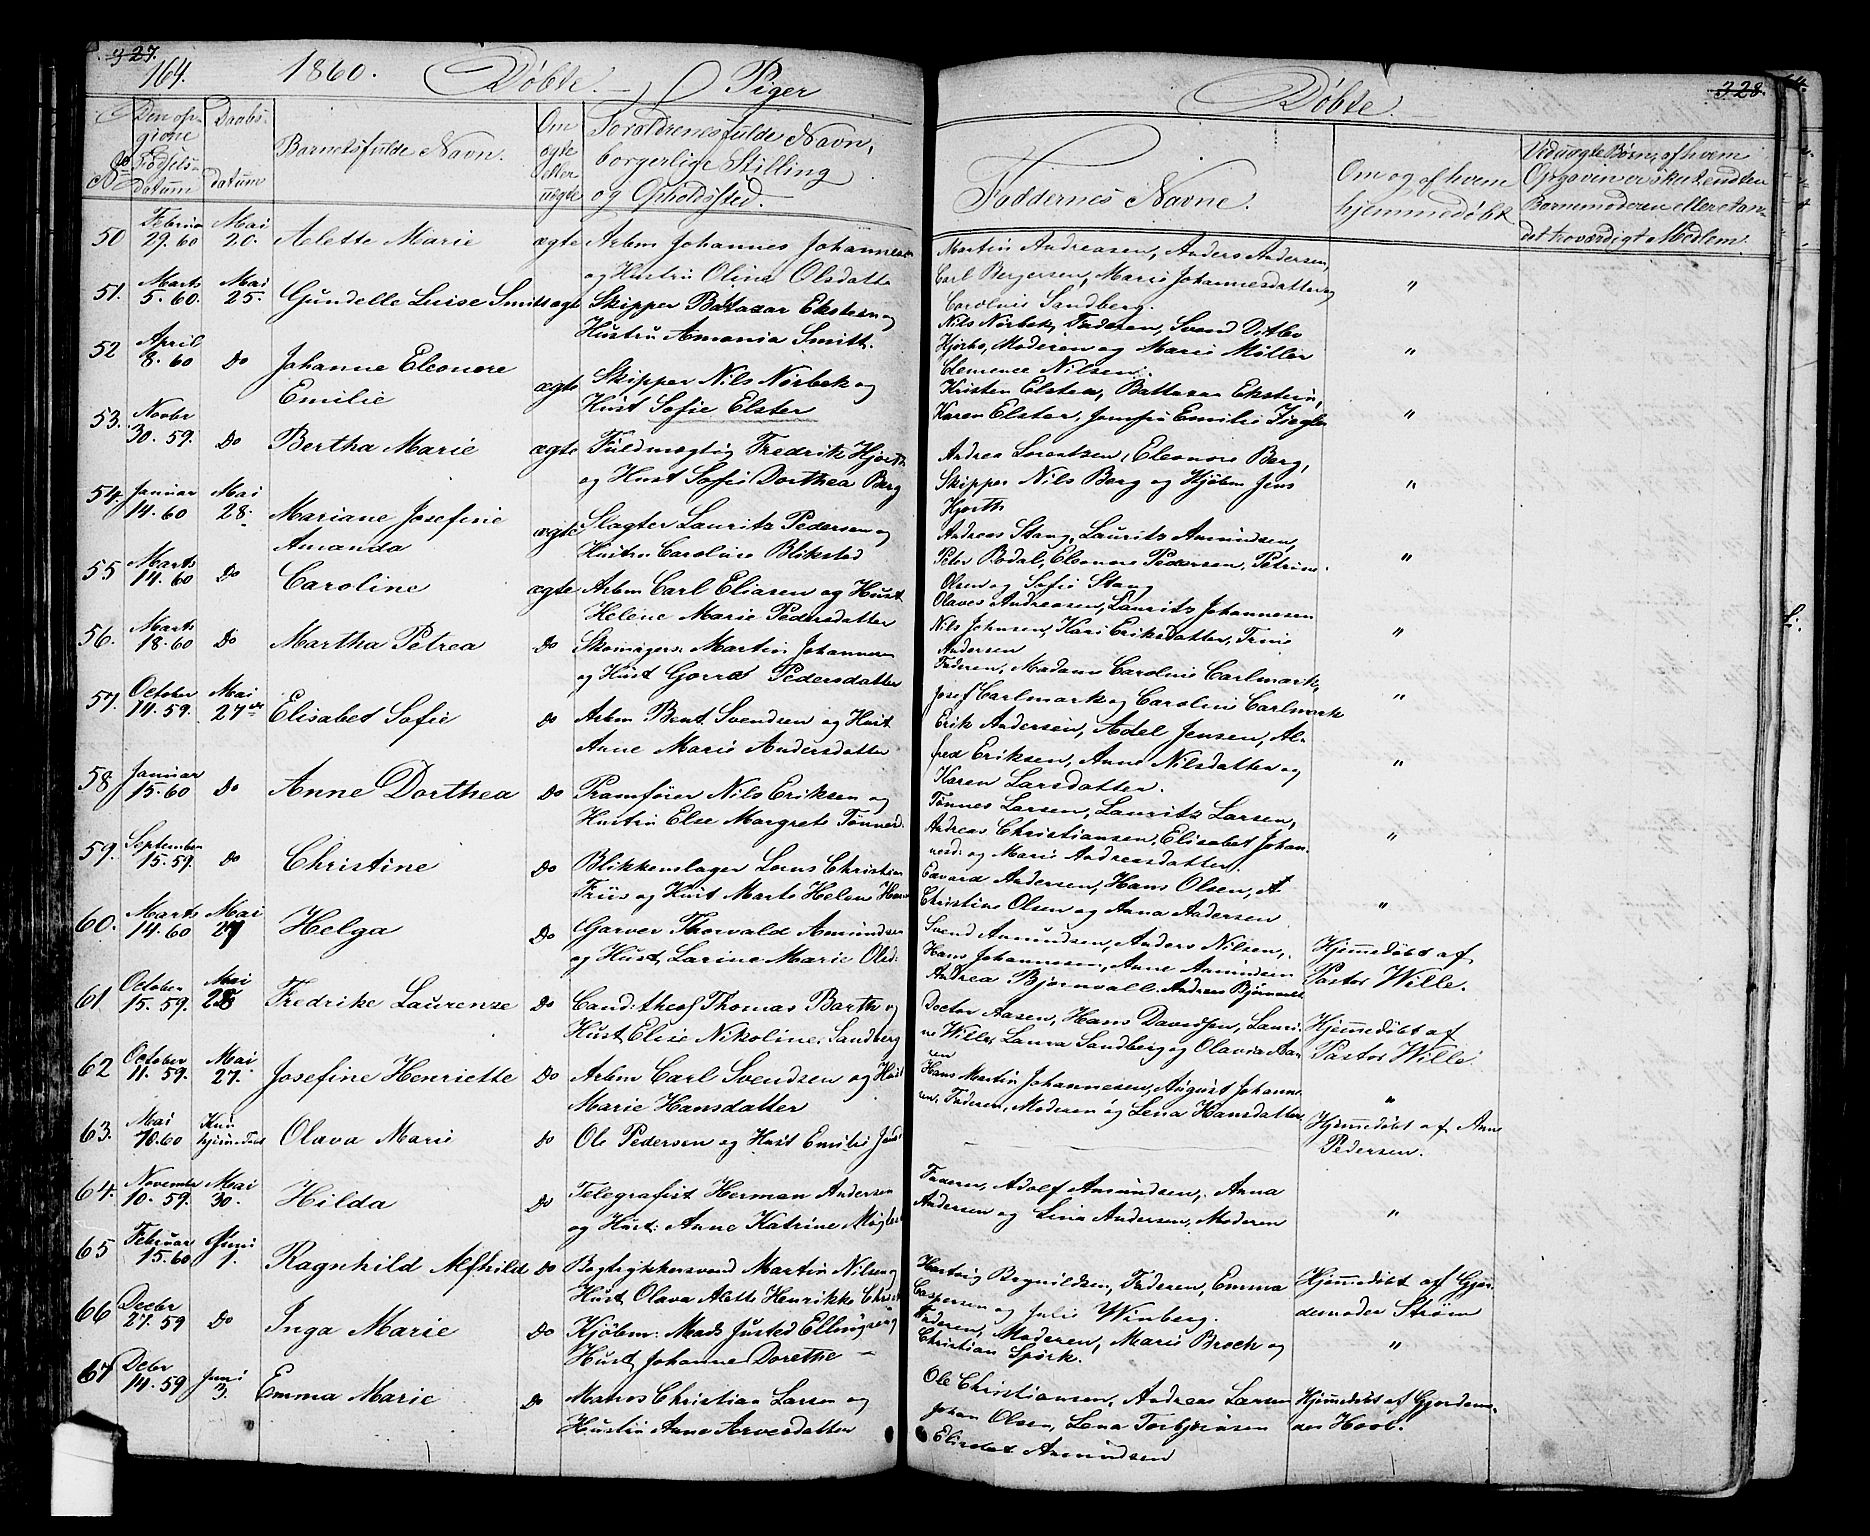 327.
164. 1860. Døbte. Piger
No
Den op-
givne
Fødsels-
datum
Daabs-
datum
Barnets fulde Navn.
Om
ægte
eller
uægte
Forældrenes fulde Navn,
borgerlige Stilling
og Opholdssted.
50 Februar 29. 60 Mai 20. Aelette Marie ægte Arbm Johannes Johannesen
og Hustru Olina Olsdatter
51. Marts 5. 60. Mai 25. Gundelle Luise Smitt ægte Skipper Baltazar Ekstein og
Hustru Amanda Smitt.
52 April 8. 60 Do Johanne Eleonore
Emilie ægte Skipper Nils Nørbek og
Hust Sofie Elster
53. Novbr 30. 59. Do Bertha Marie ægte Fuldmægtig Fredrik Hjorth
og Hust Sofie Dorthea Berg
54. Januar 14. 60 Mai 28. Mariane Josefine
Amanda ægte Slagter Lauritz Pedersen og
Hustru Caroline Blikstad
55 Marts 14. 60 Do Caroline ægte Arbm Carl Eliasen og Hust
Helene Marie Pedersdatter
56. Marts 18. 60 Do Martha Petrea Do Skomagers: Martin Johannesen
og Hust Gorra Pedersdatter
57. October 14. 59. Mai 27de Elisabet Sofie Do Arbm Bent Svendsen og Hust
Anne Marie Andersdatter
58 Januar 15. 60 Do Anne Dorthea Do Pramfører Nils Eriksen og
Hustru Else Margrete Tønnesd.
59. September 15. 59. Do Christine Do Blikkenslager Lorens Christian
Friis og Hust Marte Helene
60. Marts 14. 60 Mai 27 Helga Do Garver Thorvald Amundsen
og Hust, Larine Marie Olsd:
61. October 15. 59. Mai 28 Fredrike Laurenze Do Cand: theol Thomas Barth og
Hust, Elise Nikoline Sandberg
62 October 11. 59. Mai 27. Josefine Henriette Do Arbm Carl Svendsen og Hust
Marie Hansdatter
63. Mai 10. 60 Kun hjemmedøbt Olava Marie Do Ole Pedersen og Hust Emilie
64. November 10. 59. Mai 30. Hilda Do Telegrafist Herman Andersen
og Hust: Anne Katrine
65 Februar 15. 60 Juni 1. Ragnhild Alfhild Do Bogtrykkersvend Martin Nilsen og
Hust, Olava Alette Henrikke
66 Decbr 27. 59 Do Inga Marie Do Kjøbm: Mads Justed Ellingsen og
Hust, Johanne Dorethe —
67 Debr 14. 59 Juni 3. Emma Marie Do Matros Christian Larsen og
Hustru Anne Arvesdatter
328.
Døbte.
Faddernes Navne.
Om og af hvem
hjemmedøbt
Ved uægte Børn, af hvem
Opgaven er skeet, endten
Barnemoderen eller et an-
det troværdigt Medlem.
Martin Andreasen, Anders Andersen,
Carl Bergersen, Marie Johannesdatter og "
Caroline Sandberg.
Nils Nørbek, Faderen, Svend Ditlev
Hjorth, Moderen og Marie Møller "
Clemence Nilsen.
Kristen Elster, Baltazar Ekstein,
Karen Elster, Jomfru Emilie Ziegler "
Andrea Lorentzen, Eleonore Berg,
Skipper Nils Berg og Kjøbm Jens "
Hjorth
Andreas Stang, Lauritz Amundsen,
Peter Rodal, Eleonore Pedersen, Petrine "
Olsen og Sofie Stang
Olaves Andreasen, Lauritz Johannesen
Nils Johnsen, Kari Eriksdatter, Trine "
Andersen
Faderen, Madame Caroline Carlmark,
Josef Carlmark og Caroline Carlmark "
Erik Andersen, Adel Jensen, Al-
fred Eriksen, Anne Nilsdatter og "
Karen Larsdatter.
Tønnes Larsen, Lauritz Larsen,
Andreas Christiansen, Elisabet Johan- "
nesd: og Marie Andreasdatter
Edvard Andersen, Hans Olsen, A
Christine Olsen og Anna Andersen "
Svend Amundsen, Anders Nilsen,
Hans Johannesen, Anne Aamundsen
Andrea Bjørnvall. Andreas Bjørnvall
Hjemmedøbt af
Pastor Wille.
Doctor Aasen, Hans Davidsen, Lauri-
ne Wille, Laura Sandberg og Olavia Aa-
sen
Hjemmedøbt af
Pastor Wille.
Hans Martin Johannesen, August Johanne-
sen, Faderen, Moderen og Lena Hansdatter "
— Hjemmedøbt af Anne
Pedersen.
Faderen, Adolf Amundsen, Anna
Andersen og Lina Andersen, Moderen "
Hartvig Brynildsen, Faderen, Emma
Caspersen og Julie Winberg.
Hjemmedøbt af Gjor-
demoder Strøm
Faderen, Moderen, Marie Broch og
Christian Spørk. "
Ole Christiansen, Andreas Larsen
Johan Olsen, Lena Torbjørnsen
Elisabet Aamundsen
Hjemmedøbt af Gjordemo-
der Hoel.